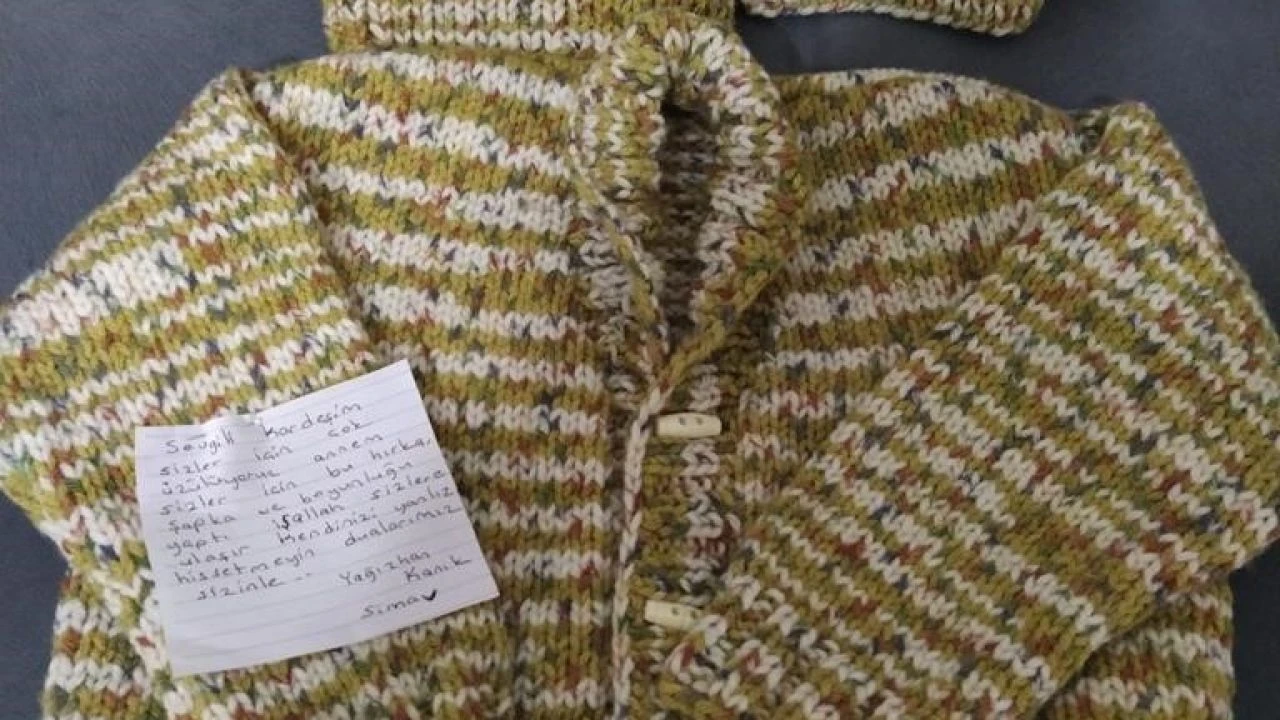 Sevgili Kardeşim
sizler için çok
üzülüyoruz annem
sizler için bu hırka,
şapka ve boyunluğu
yaptı işallah sizlere
ulaşır kendinizi yanlız
hissetmeyin dualarımız
sizinle...
Yağızhan
Kanık
Simav